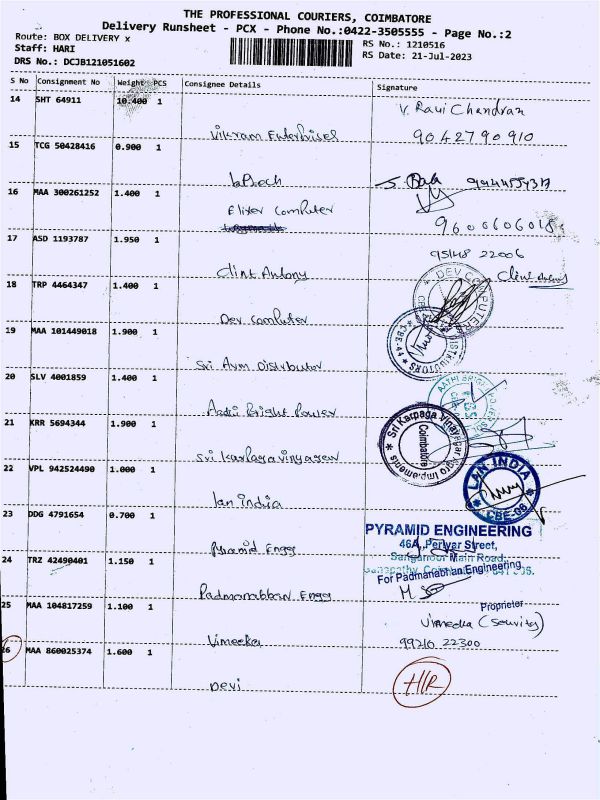 THE PROFESSIONAL COURIERS, COIMBATORE
Delivery Runsheet - PCX - Phone No.:0422-3505555 - Page No.:2
Route: BOX DELIVERY x
RS No.: 1210516
Staff: HARI
RS Date: 21-Jul-2023
DRS No.: DCJB121051602
S No Consignment No Weight PCS Consignee Details Signature
14 SHT 64911 10.400 1
V. Ravi Chandran
Vikram Enterprises 9042790910
15 TCG 50428416 0.900 1
S. Bala
16 MAA 300261252 1.400 1
Elixer Computer
9600606018
17 ASD 1193787 1.950 1
95148 22006
Clint Antony Clint Antony
18 TRP 4464347 1.400 1
DEV COMPUTER
Dev Computer
19 MAA 101449018 1.900 1
DISTRIBUTORS
CBE-4
Sri Avm Distributor
20 SLV 4001859 1.400 1
Aathi Bright Power
21 KRR 5694344 1.900 1
Sri Karpaga Vinayagar Agro Implements
Coimbatore
Sri Karpagavinyagar
22 VPL 942524490 1.000 1
LAN INDIA
CBE-06
lan india
23 DDG 4791654 0.700 1
PYRAMID ENGINEERING
46A, Periyar Street,
Sanganoor Main Road,
Pyramid Engg
24 TRZ 42490401 1.150 1
For Padmanabhan Engineering
Padmanabban Engg
Proprietor
25 MAA 104817259 1.100 1
Vimeeka
99210 22300
26 MAA 860025374 1.600 1
Devi